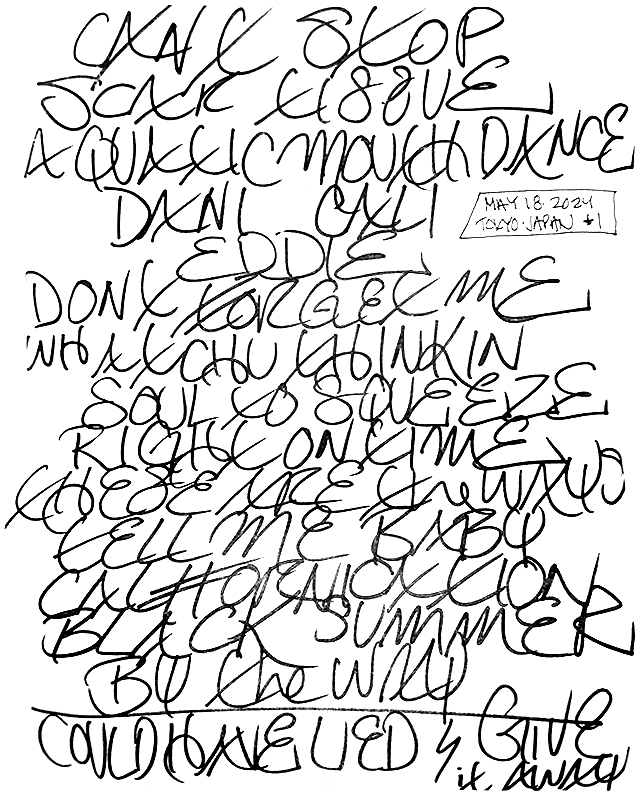 CAN'T STOP
SCAR TISSUE
AQUATIC MOUTH DANCE
DANI CALI
MAY 18. 2024
TOKYO. JAPAN #1
EDDIE
DON'T FORGET ME
WHATCHU THINKIN
SOUL TO SQUEEZE
RIGHT ON TIME
THESE ARE the WAYS
TELL ME BABY
CALIFORNICATION
BLACK SUMMER
BY the WAY
COULD HAVE LIED & GIVE
it AWAY